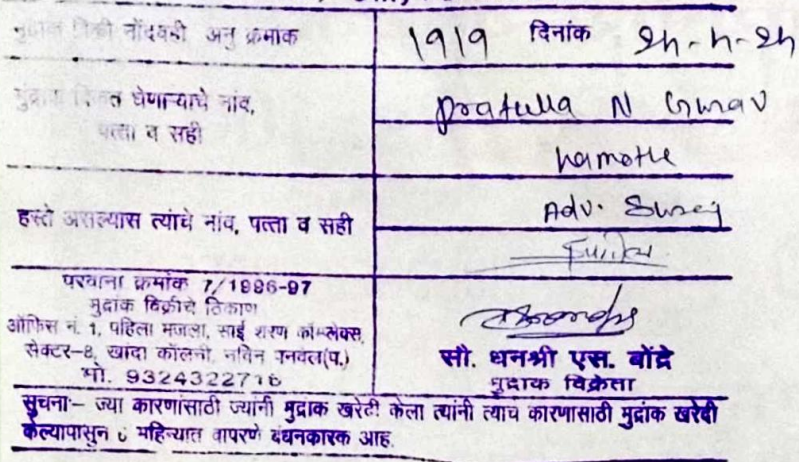 मुद्रांक विक्री नोंदवही अनु क्रमांक 1919 दिनांक
मुद्रांक विकत घेणाऱ्याचे नांव,
पत्ता व सही
Prafulla N Gurav
Kamothe
हस्ते असल्यास त्यांचे नांव, पत्ता व सही
Adv. Suraj
परवाना क्रमांक 7/1996-97
मुद्रांक विक्रीचे ठिकाण
ऑफिस नं. 1, पहिला मजला, साई शरण कॉम्प्लेक्स,
सेक्टर-8, खांदा कॉलनी, नविन पनवेल(प.)
मो. 9324322716
सौ. धनश्री एस. बोंद्रे
मुद्रांक विक्रेता
सुचनाः- ज्या कारणांसाठी ज्यांनी मुद्रांक खरेदी केला त्यांनी त्याच कारणासाठी मुद्रांक खरेदी
केल्यापासुन ६ महिन्यात वापरणे बंधनकारक आहे.